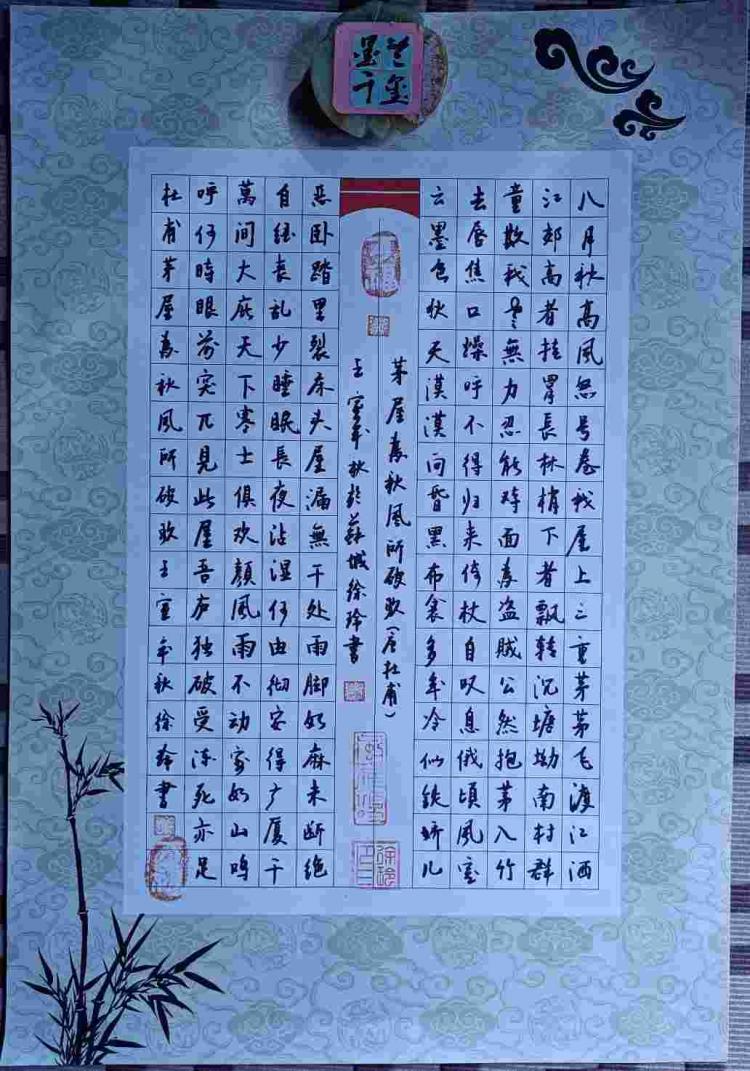 八月秋高風怒号卷我屋上三重茅茅飞渡江洒
江郊高者挂罥長林梢下者飄转沉塘坳南村群
童欺我老無力忍能对面為盗贼公然抱茅入竹
去唇焦口燥呼不得归来倚杖自叹息俄頃風定
云墨色秋天漠漠向昏黑布衾多年冷似鉄娇儿
茅屋為秋風所破歌(唐杜甫)
壬寅年秋於蘇城徐玲書
恶卧踏里裂床头屋漏無干处雨脚如麻未断绝
自经丧乱少睡眠長夜沾湿何由彻安得广厦千
萬间大庇天下寒士俱欢顏風雨不动安如山鸣
呼何時眼前突兀見此屋吾庐独破受冻死亦足
杜甫茅屋為秋風所破歌壬寅年秋徐玲書